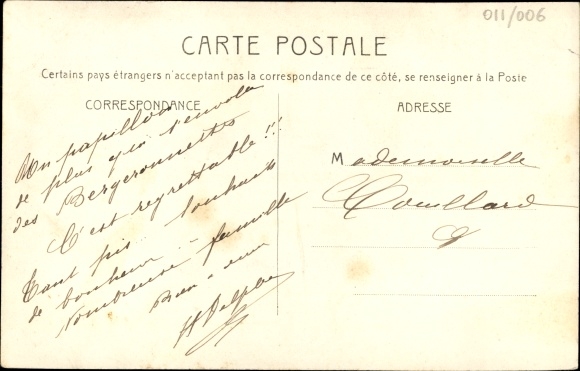 011/006
CARTE POSTALE
Certains pays étrangers n'acceptant pas la correspondance de ce côté, se renseigner à la Poste
CORRESPONDANCE
Un papillon
de plus qui s'envole
des Bergeronnettes
C'est regrettable!!!
Tant pis. Souhaits
de bonheur –
Nombreuse famille
Bien à eux
ADRESSE
Mademoiselle